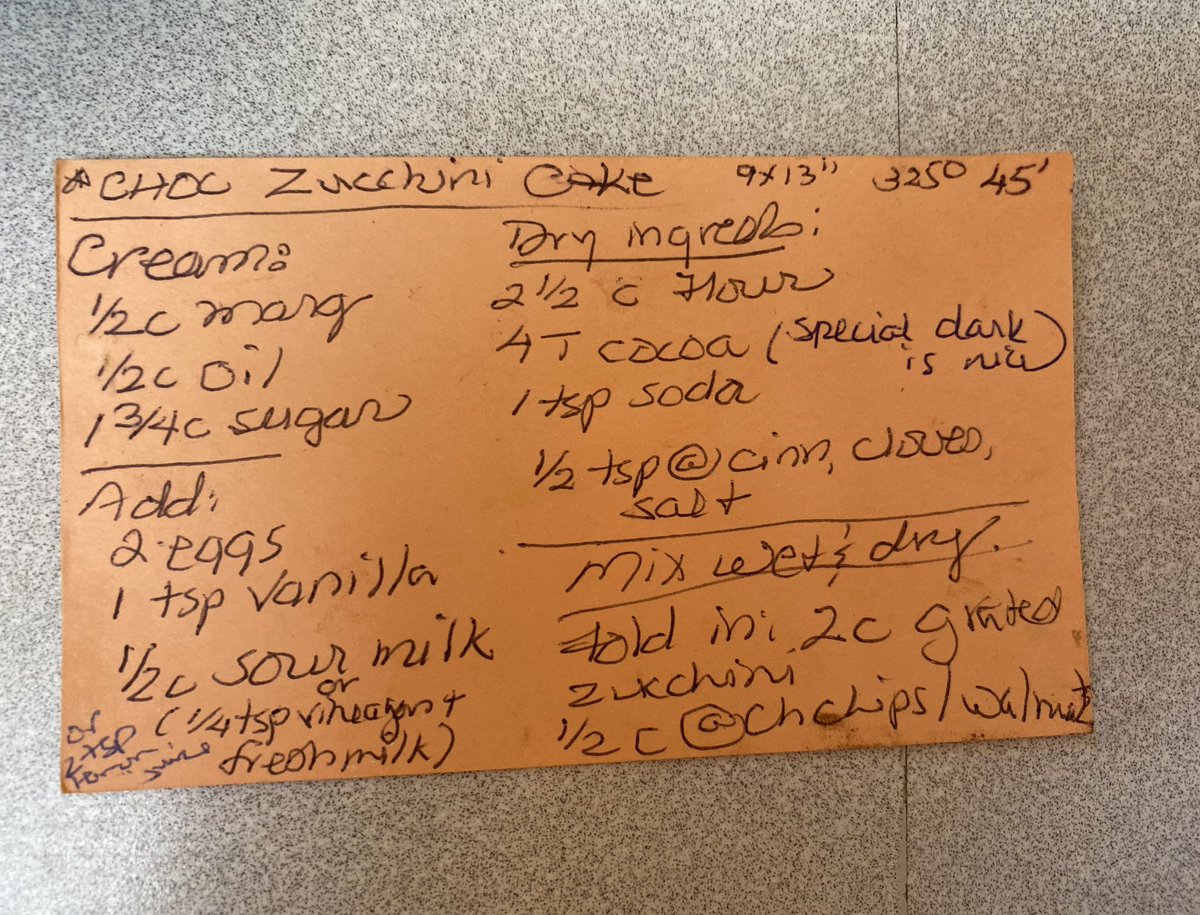 *CHOC Zucchini Cake 9x13" 325° 45'
Cream:
1/2c marg
1/2c oil
1 3/4c sugar
Add:
2 eggs
1 tsp vanilla
1/2c sour milk
or
(1/4 tsp vineagar +
fresh milk)
or
tsp
juice
Dry ingreds:
2 1/2 c Flour
4 T cocoa (special dark
is nice)
1 tsp soda
1/2 tsp @ cinn, cloves,
salt
Mix wet & dry.
Fold in: 2c grated
zucchini
1/2 c @ ch chips/walnuts